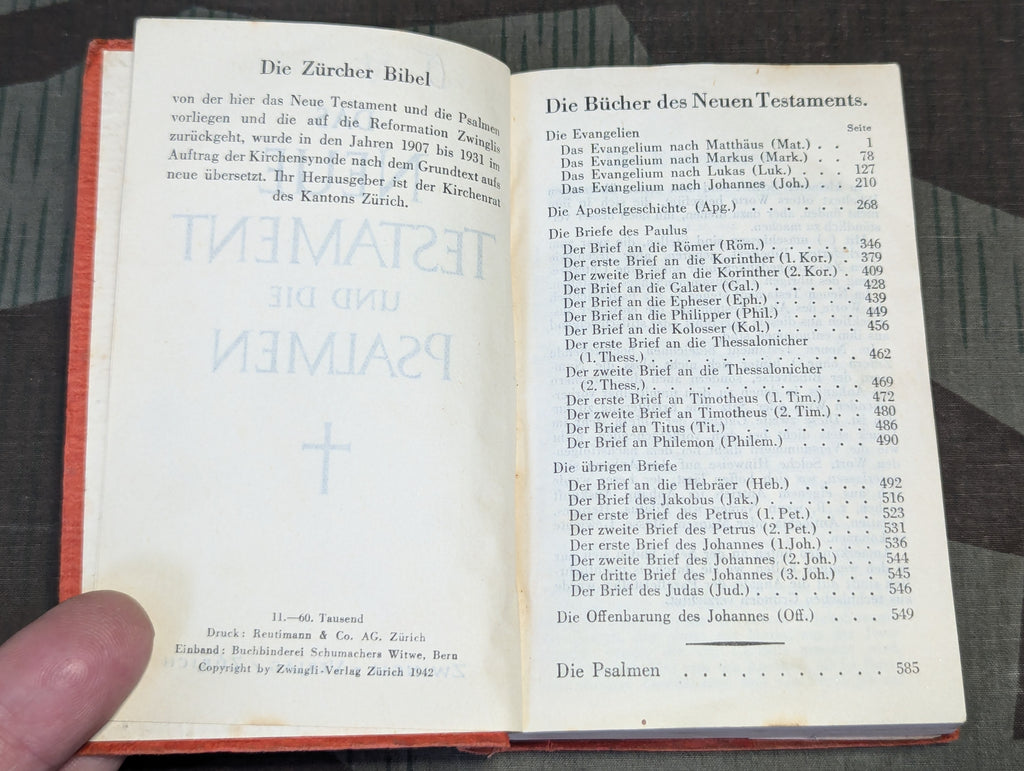 Die Zürcher Bibel
von der hier das Neue Testament und die Psalmen
vorliegen und die auf die Reformation Zwinglis
zurückgeht, wurde in den Jahren 1907 bis 1931 im
Auftrag der Kirchensynode nach dem Grundtext aufs
neue übersetzt. Ihr Herausgeber ist der Kirchenrat
des Kantons Zürich.
NEUE
TESTAMENT
UND DIE
PSALMEN
11.—60. Tausend
Druck: Reutimann & Co. AG. Zürich
Einband: Buchbinderei Schumachers Witwe, Bern
Copyright by Zwingli-Verlag Zürich 1942
Die Bücher des Neuen Testaments.
Seite
Die Evangelien
Das Evangelium nach Matthäus (Mat.) . . 1
Das Evangelium nach Markus (Mark.) . . 78
Das Evangelium nach Lukas (Luk.) . . . 127
Das Evangelium nach Johannes (Joh.) . 210
Die Apostelgeschichte (Apg.) . . . . . . 268
Die Briefe des Paulus
Der Brief an die Römer (Röm.) . . . . 346
Der erste Brief an die Korinther (1. Kor.) . 379
Der zweite Brief an die Korinther (2. Kor.) . 409
Der Brief an die Galater (Gal.) . . . . . 428
Der Brief an die Epheser (Eph.) . . . . 439
Der Brief an die Philipper (Phil.) . . . . 449
Der Brief an die Kolosser (Kol.) . . . . 456
Der erste Brief an die Thessalonicher
(1. Thess.) . . . . . . . . . . . 462
Der zweite Brief an die Thessalonicher
(2. Thess.) . . . . . . . . . . . 469
Der erste Brief an Timotheus (1. Tim.) . . 472
Der zweite Brief an Timotheus (2. Tim.) . . 480
Der Brief an Titus (Tit.) . . . . . . . 486
Der Brief an Philemon (Philem.) . . . . 490
Die übrigen Briefe
Der Brief an die Hebräer (Heb.) . . . . 492
Der Brief des Jakobus (Jak.) . . . . . . 516
Der erste Brief des Petrus (1. Pet.) . . . 523
Der zweite Brief des Petrus (2. Pet.) . . . 531
Der erste Brief des Johannes (1.Joh.) . . . 536
Der zweite Brief des Johannes (2. Joh.) . . 544
Der dritte Brief des Johannes (3. Joh.) . . 545
Der Brief des Judas (Jud.) . . . . . . 546
Die Offenbarung des Johannes (Off.) . . . 549
Die Psalmen . . . . . . . . . . . 585